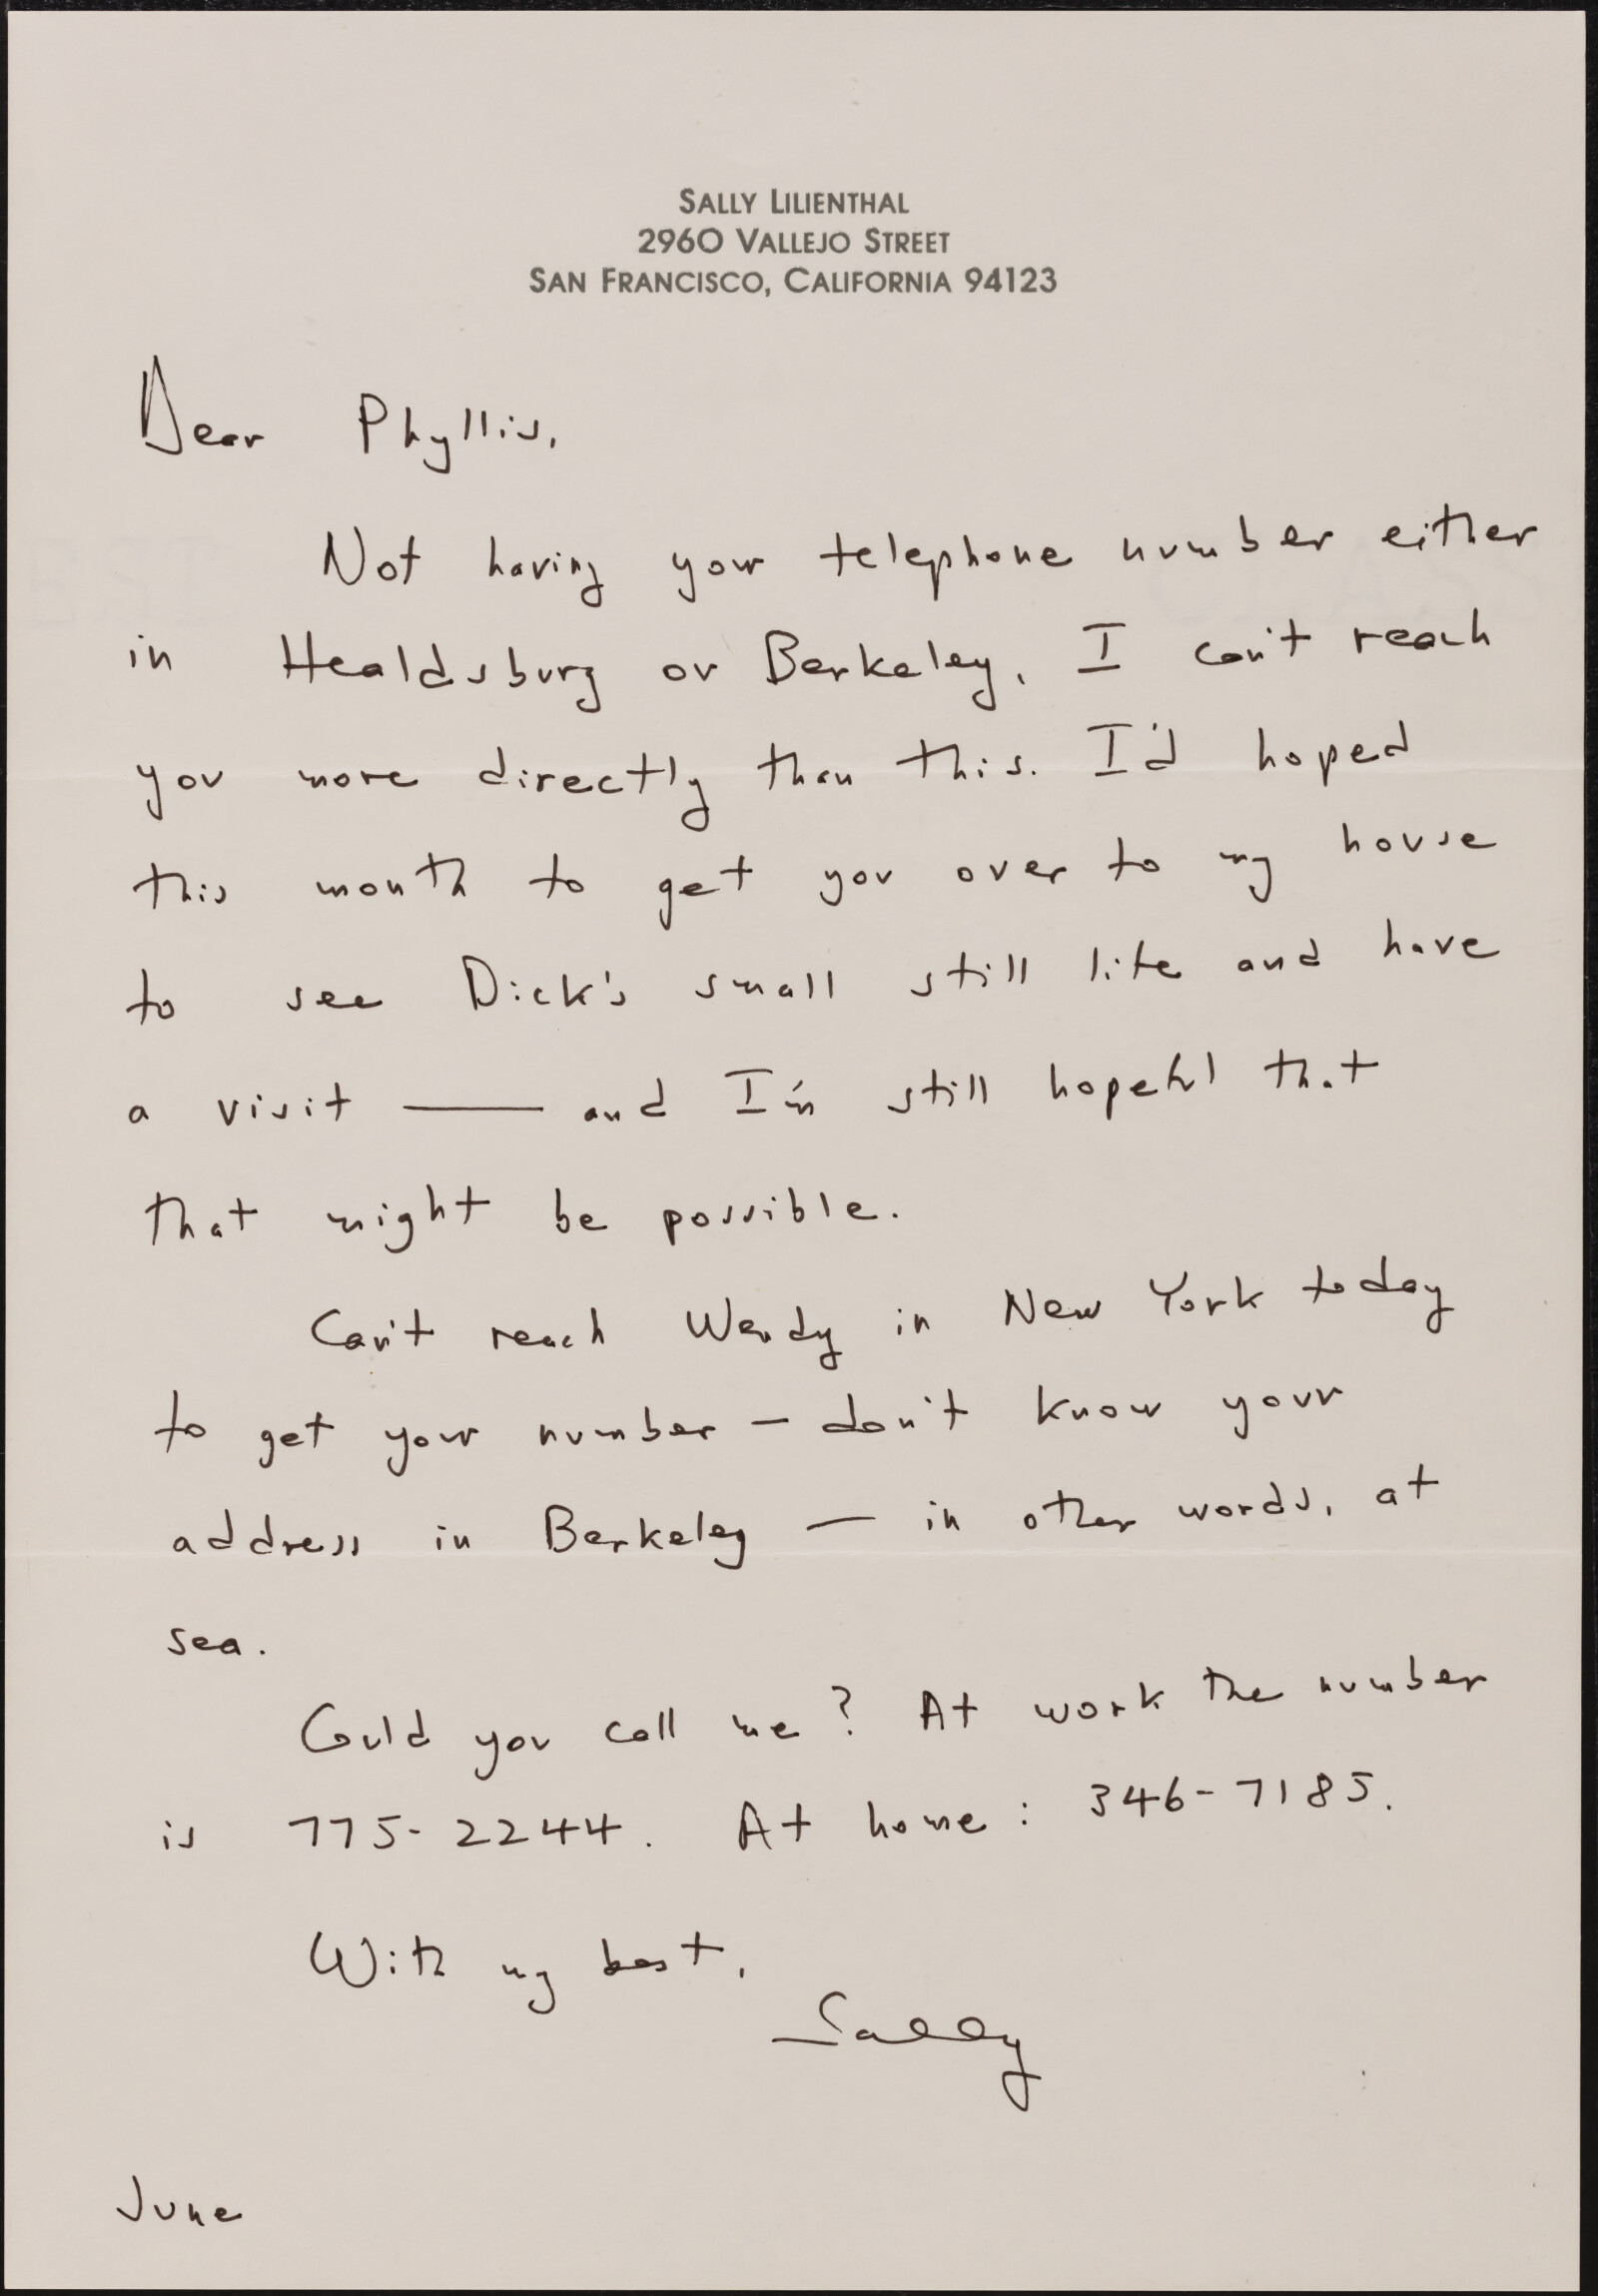 SALLY LILIENTHAL
2960 VALLEJO STREET
SAN FRANCISCO, CALIFORNIA 94123
Dear Phyllis,
Not having your telephone number either
in Healdsburg or Berkeley, I can't reach
you more directly than this. I'd hoped
this month to get you over to my house
to see Dick's small still life and have
a visit — and I'm still hopeful that
that might be possible.
Can't reach Wendy in New York today
to get your number — don't know your
address in Berkeley — in other words, at
sea.
Could you call me? At work the number
is 775-2244. At home: 346-7185.
With my best,
Sally
June